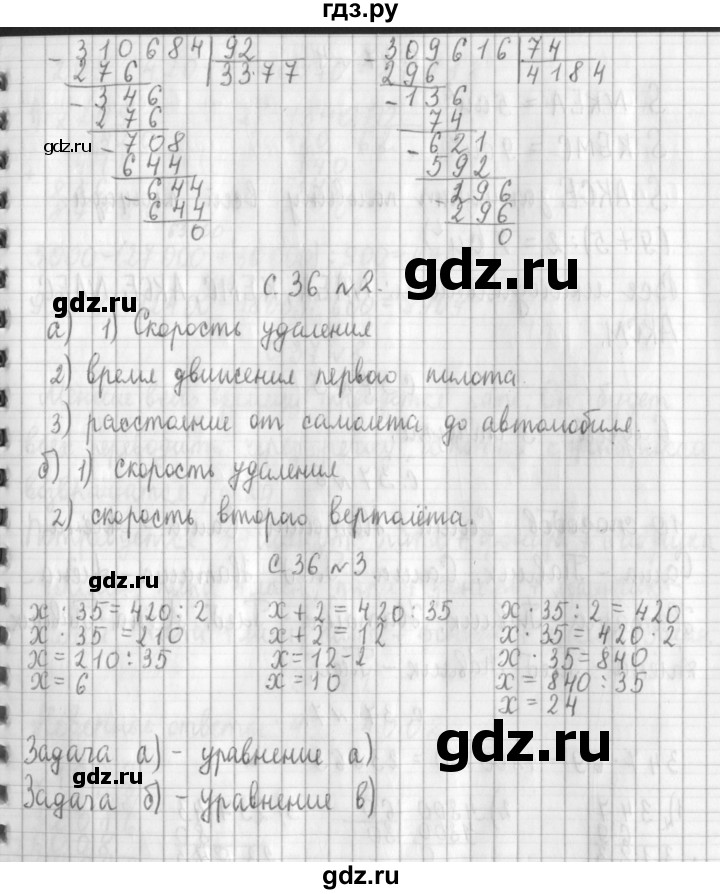 гдз.ру
310684 | 92
276 | 3377
346
276
708
644
644
644
0
309616 | 74
296 | 4184
136
74
621
592
296
296
0
gdz.ru
gdz.ru
С. 36 №2.
gdz.ru
а) 1) Скорость удаления
2) время движения первого пилота.
3) расстояние от самолета до автомобиля.
б) 1) скорость удаления
2) скорость второго вертолёта.
С 36 №3
gdz.ru
x · 35 = 420 : 2
x · 35 = 210
x = 210 : 35
x = 6
x + 2 = 420 : 35
x + 2 = 12
x = 12 - 2
x = 10
x · 35 : 2 = 420
x · 35 = 420 · 2
x · 35 = 840
x = 840 : 35
x = 24
gdz.ru
Задача а) - уравнение а)
gdz.ru
Задача б) - уравнение в)
gdz.ru